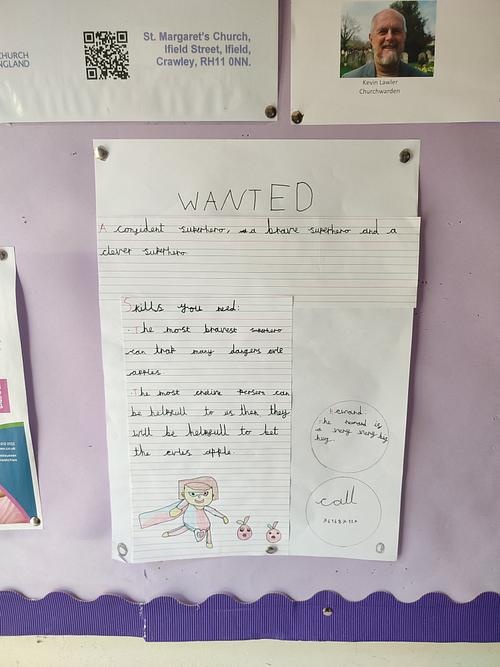 CHURCH
ENGLAND
St. Margaret's Church,
Ifield Street, Ifield,
Crawley, RH11 0NN.
Kevin Lawler
Churchwarden
WANTED
A confident superhero, a brave superhero and a
clever superhero
Skills you need:
The most bravest superhero
can trak many dangers evle
apples.
The most
person can
be helpfull to us then they
will be helpfull to bet
the evles apple.
Reward:
the reward is
a very very big
hug.
call